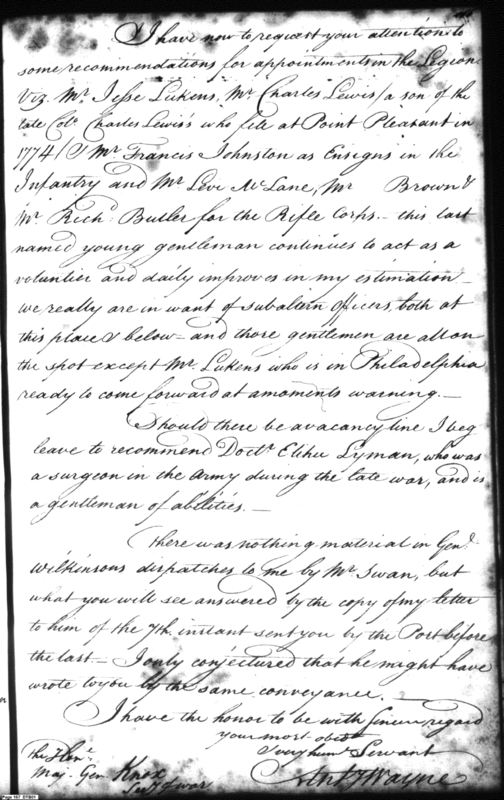 I have now to request your attention to
some recommendations for appointments in the Legion
Viz. Mr. Jesse Lukens, Mr. Charles Lewis / a son of the
late Colo. Charles Lewis's who fell at Point Pleasant in
1774 / & Mr. Francis Johnston as Ensigns in the
Infantry and Mr. Levi McLane, Mr Brown &
Mr. Richd. Butler for the Rifle Corps — this last
named young gentleman continues to act as a
volunteer and daily improves in my estimation —
we really are in want of subaltern Officers, both at
this place & below — and those gentlemen are all on
the spot except Mr. Lukens who is in Philadelphia
ready to come forward at a moments warning. —
Should there be a vacancy I beg
leave to recommend Doctr. Elihu Lyman, who was
a surgeon in the Army during the late war, and is
a gentleman of abilities. —
There was nothing material in Genl.
Wilkinsons dispatches to me by Mr. Swan, but
what you will see answered by the copy of my letter
to him of the 7th. instant sent you by the Post before
the last. — I only conjectured that he might have
wrote to you by the same conveyance. —
I have the honor to be with sincere regard
your most obedt.
& very huml. Servant
Anty. Wayne
The Honl.
Maj. Gen Knox
Secy of war